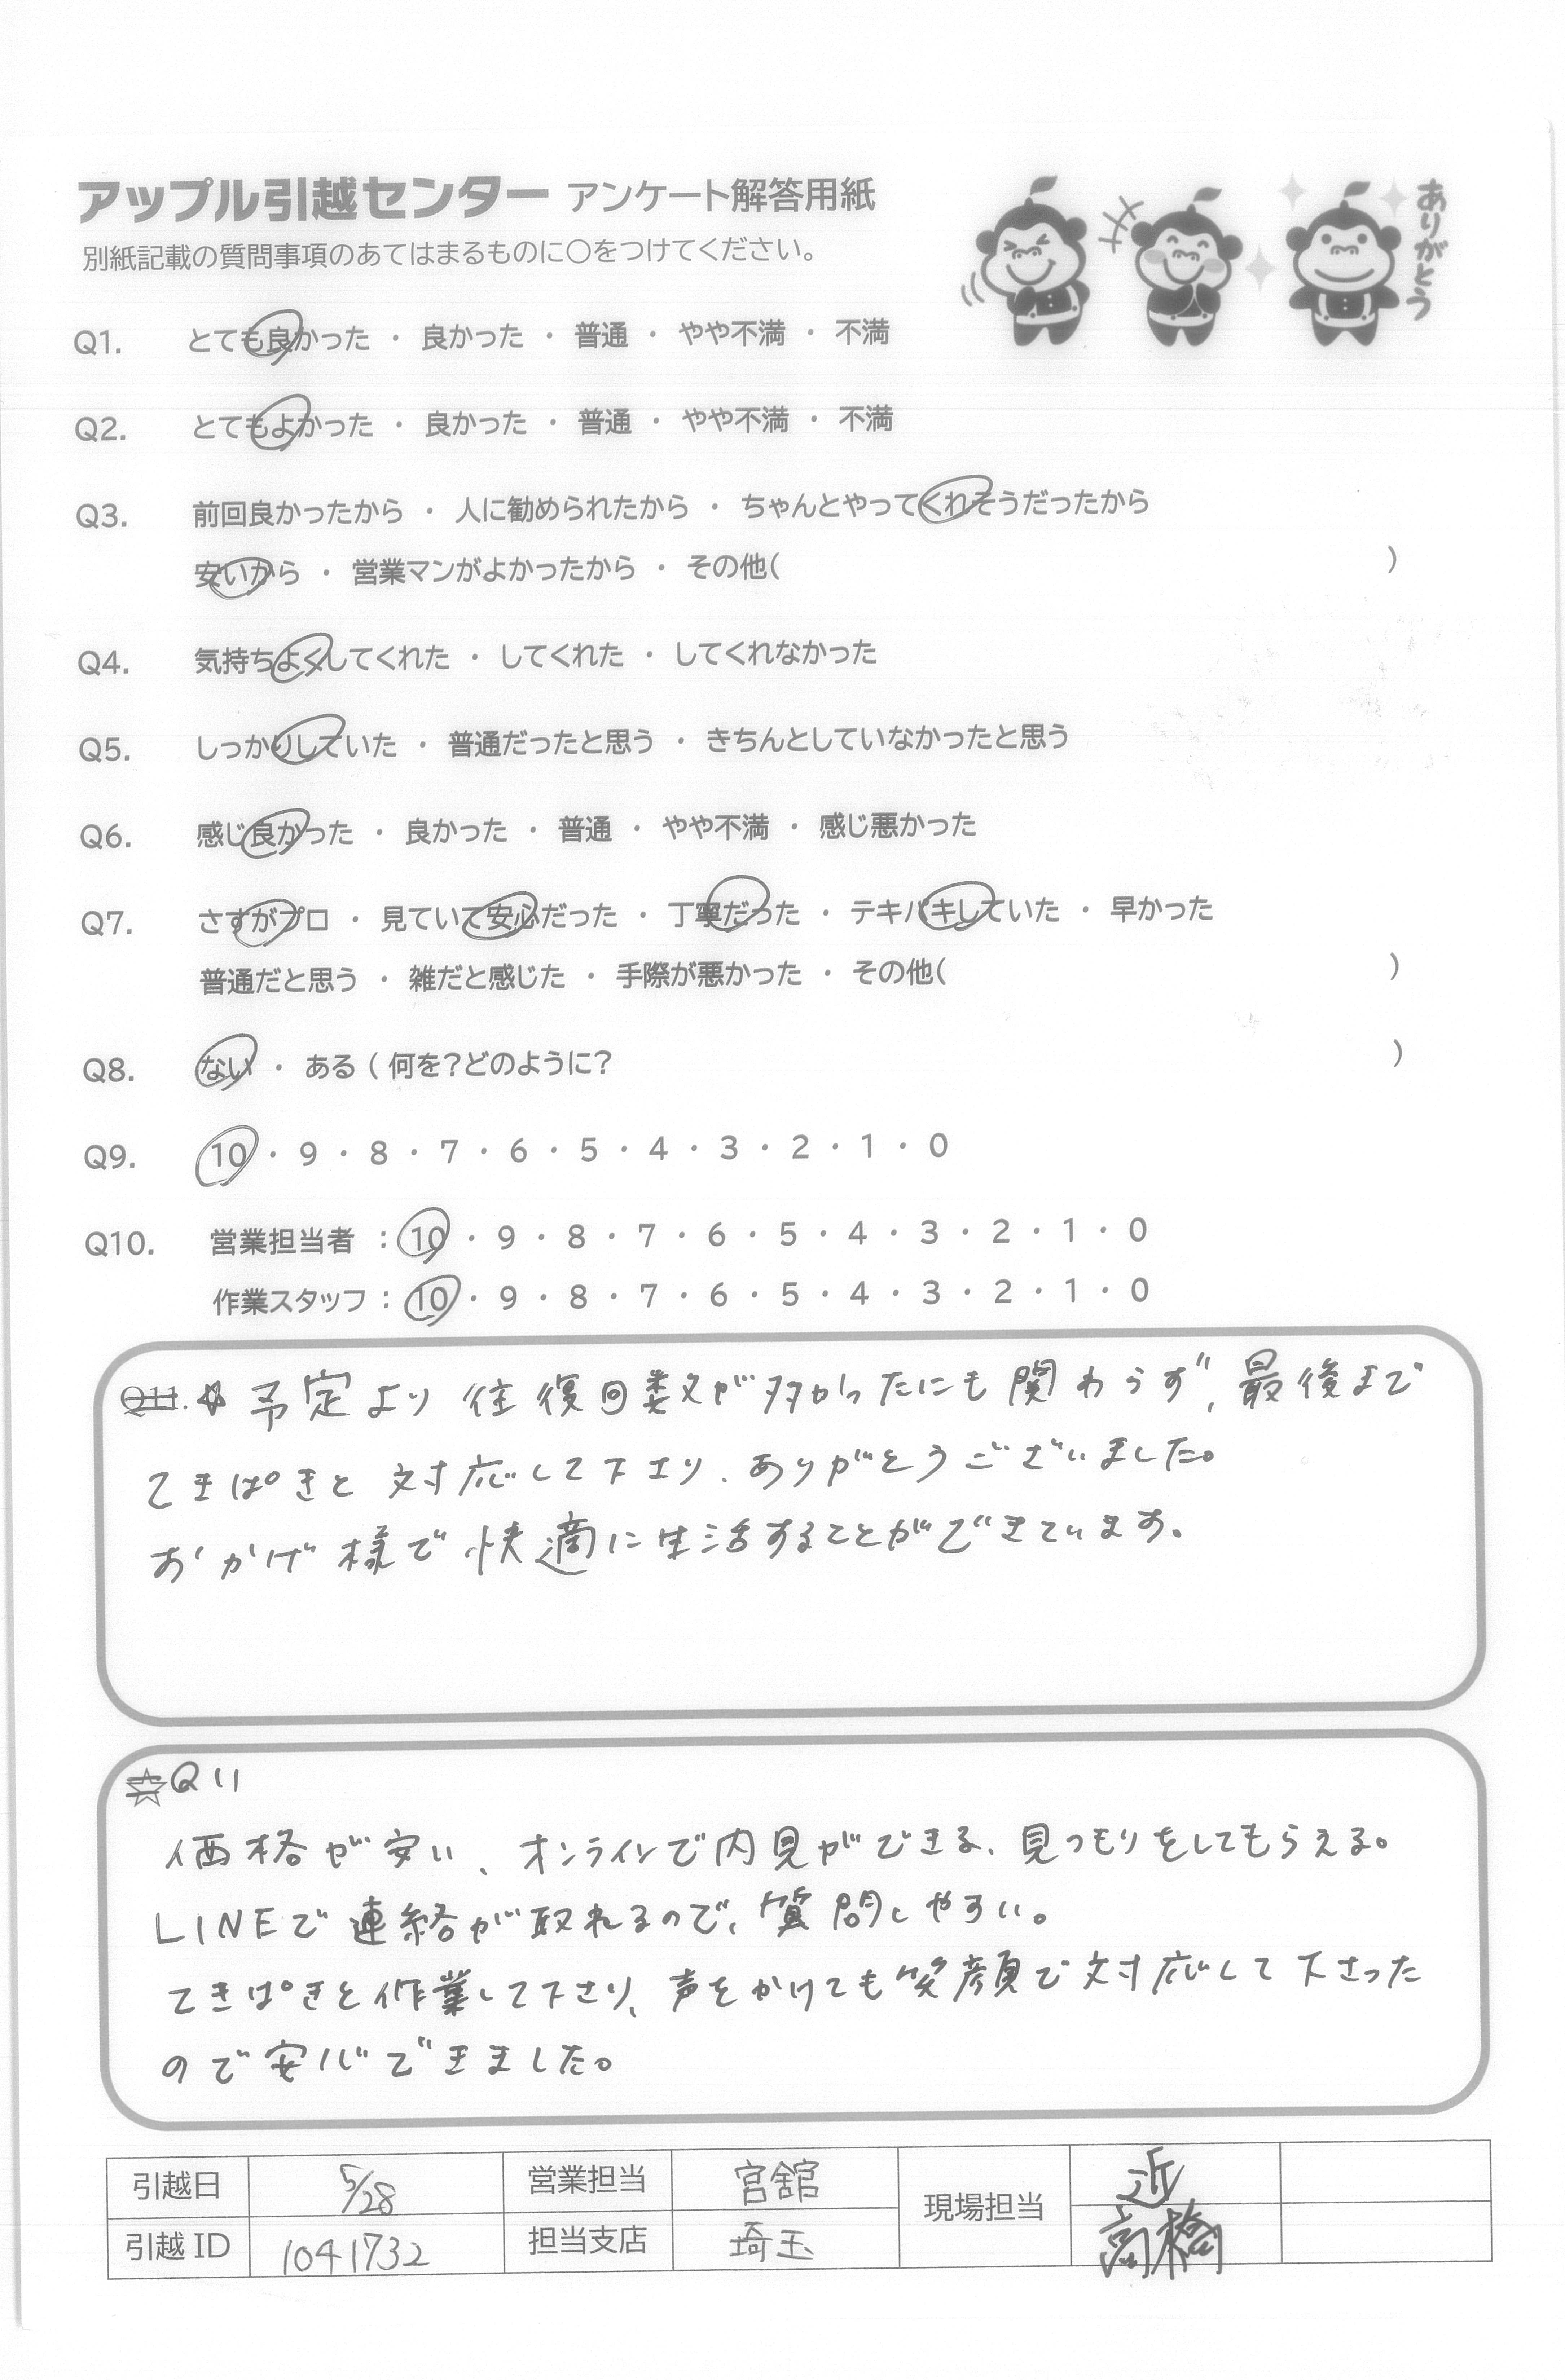 アップル引越センター アンケート解答用紙
ありがとう
別紙記載の質問事項のあてはまるものに〇をつけてください。
Q1. とても良かった ・ 良かった ・ 普通 ・ やや不満 ・ 不満
Q2. とてもよかった ・ 良かった ・ 普通 ・ やや不満 ・ 不満
Q3. 前回良かったから ・ 人に勧められたから ・ ちゃんとやってくれそうだったから
安いから ・ 営業マンがよかったから ・ その他( )
Q4. 気持ちよくしてくれた ・ してくれた ・ してくれなかった
Q5. しっかりしていた ・ 普通だったと思う ・ きちんとしていなかったと思う
Q6. 感じ良かった ・ 良かった ・ 普通 ・ やや不満 ・ 感じ悪かった
Q7. さすがプロ ・ 見ていて安心だった ・ 丁寧だった ・ テキパキしていた ・ 早かった
普通だと思う ・ 雑だと感じた ・ 手際が悪かった ・ その他( )
Q8. ない ・ ある ( 何を?どのように? )
Q9. 10 ・ 9 ・ 8 ・ 7 ・ 6 ・ 5 ・ 4 ・ 3 ・ 2 ・ 1 ・ 0
Q10. 営業担当者 : 10 ・ 9 ・ 8 ・ 7 ・ 6 ・ 5 ・ 4 ・ 3 ・ 2 ・ 1 ・ 0
作業スタッフ : 10 ・ 9 ・ 8 ・ 7 ・ 6 ・ 5 ・ 4 ・ 3 ・ 2 ・ 1 ・ 0
Q11.☆ 予定より往復回数が多かったにも関わらず、最後まで
てきぱきと対応して下さり、ありがとうございました。
おかげ様で快適に生活することができています。
☆Q11
価格が安い、オンラインで内見ができる、見つもりをしてもらえる。
LINEで連絡が取れるので、質問しやすい。
てきぱきと作業して下さり、声をかけても笑顔で対応して下さった
ので安心できました。
引越日 5/28 営業担当 宮舘 現場担当 近
引越ID 1041732 担当支店 埼玉 高橋